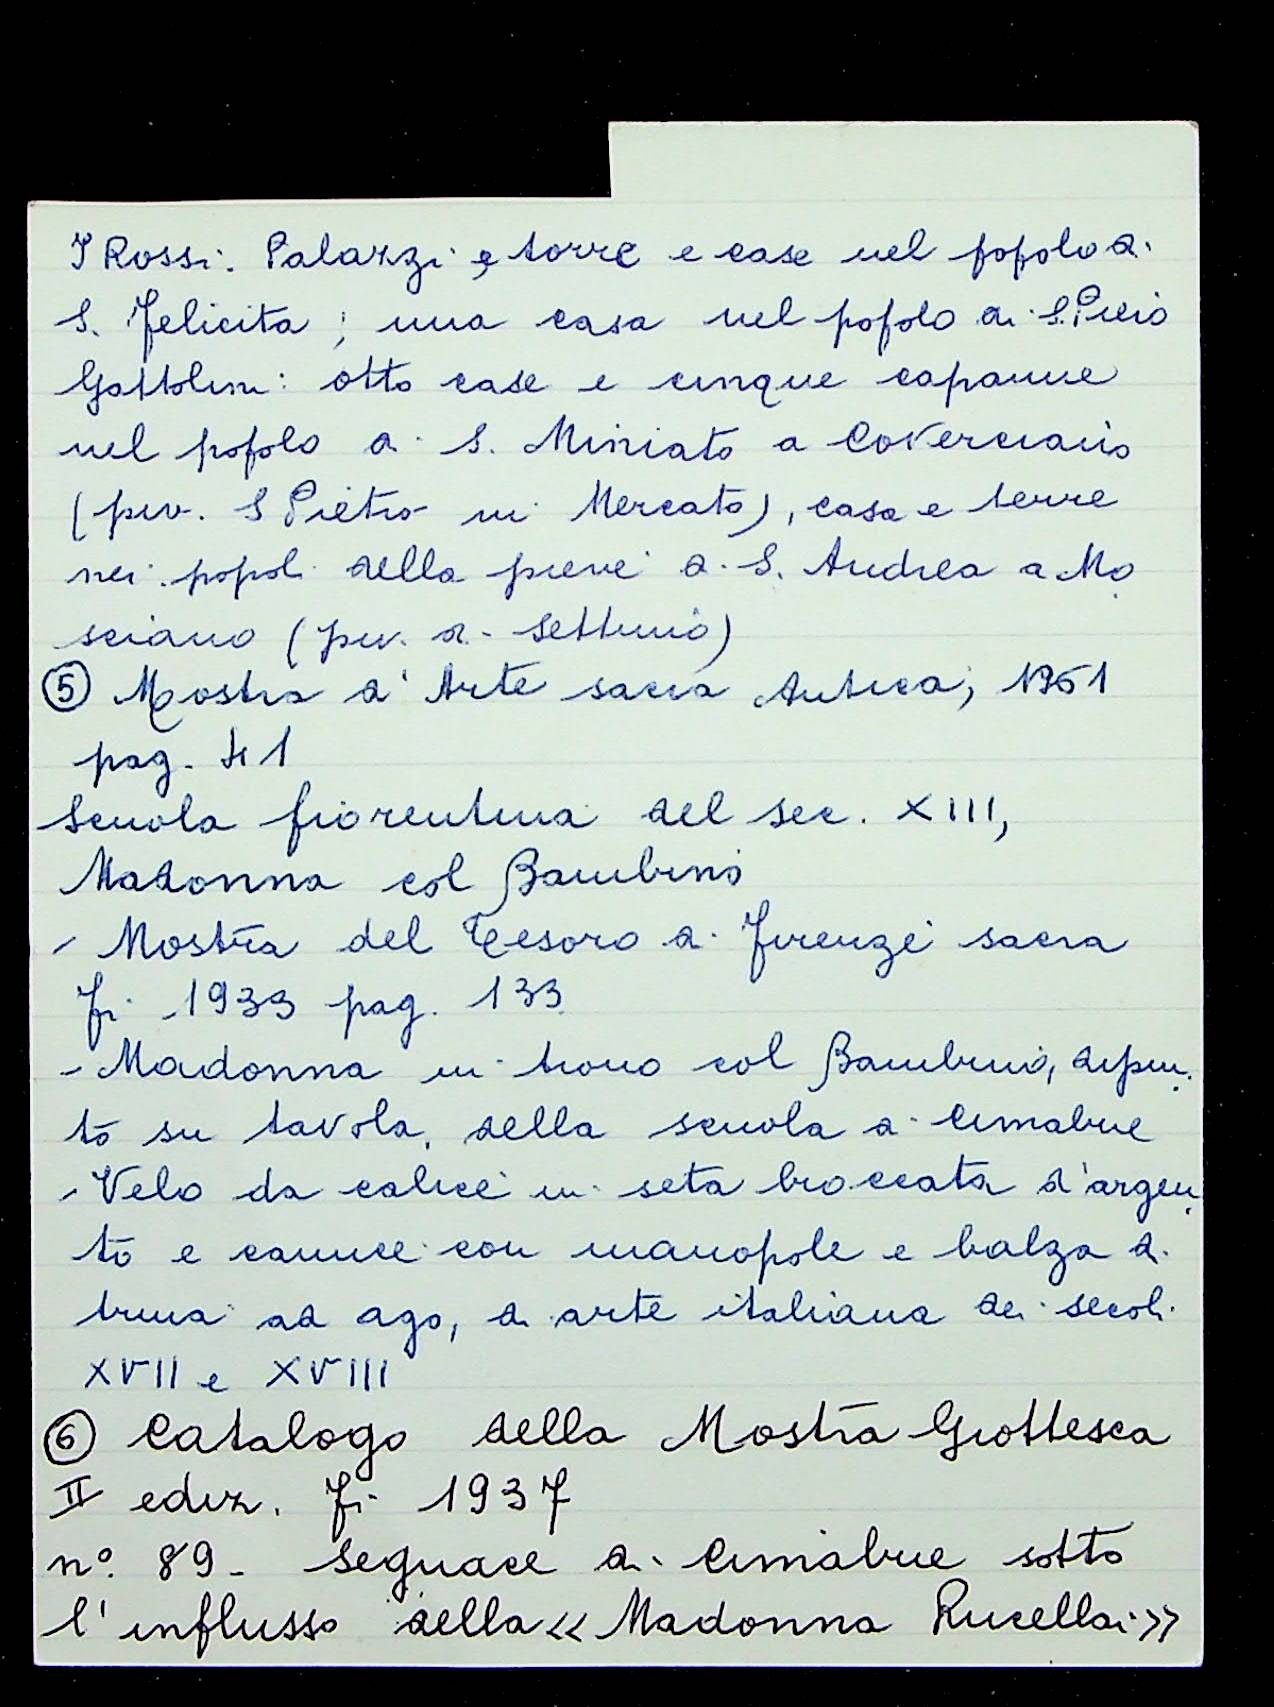 I Rossi. Palazzi e torre e case nel popolo di
S. Felicita; una casa nel popolo di S. Piero
Gattolini: otto case e cinque capanne
nel popolo di S. Miniato a Coverciano
(piv. S Pietro in Mercato), casa e terre
nei popoli della pieve di S. Andrea a Mo
sciano (piv. di Settimo)
5 Mostra d'Arte sacra Antica, 1961
pag. 41
Scuola fiorentina del sec. XIII,
Madonna col Bambino
- Mostra del Tesoro di Firenze sacra
Fi 1933 pag. 133
- Madonna in trono col Bambino, dipin
to su tavola, della scuola di Cimabue
- Velo da calice in seta broccata d'argen
to e cannce con manopole e balza di
trina ad ago, di arte italiana dei secoli
XVII e XVIII
6 Catalogo della Mostra Giottesca
II ediz. Fi 1937
n° 89 - Seguace di Cimabue sotto
l'influsso della «Madonna Rucellai»